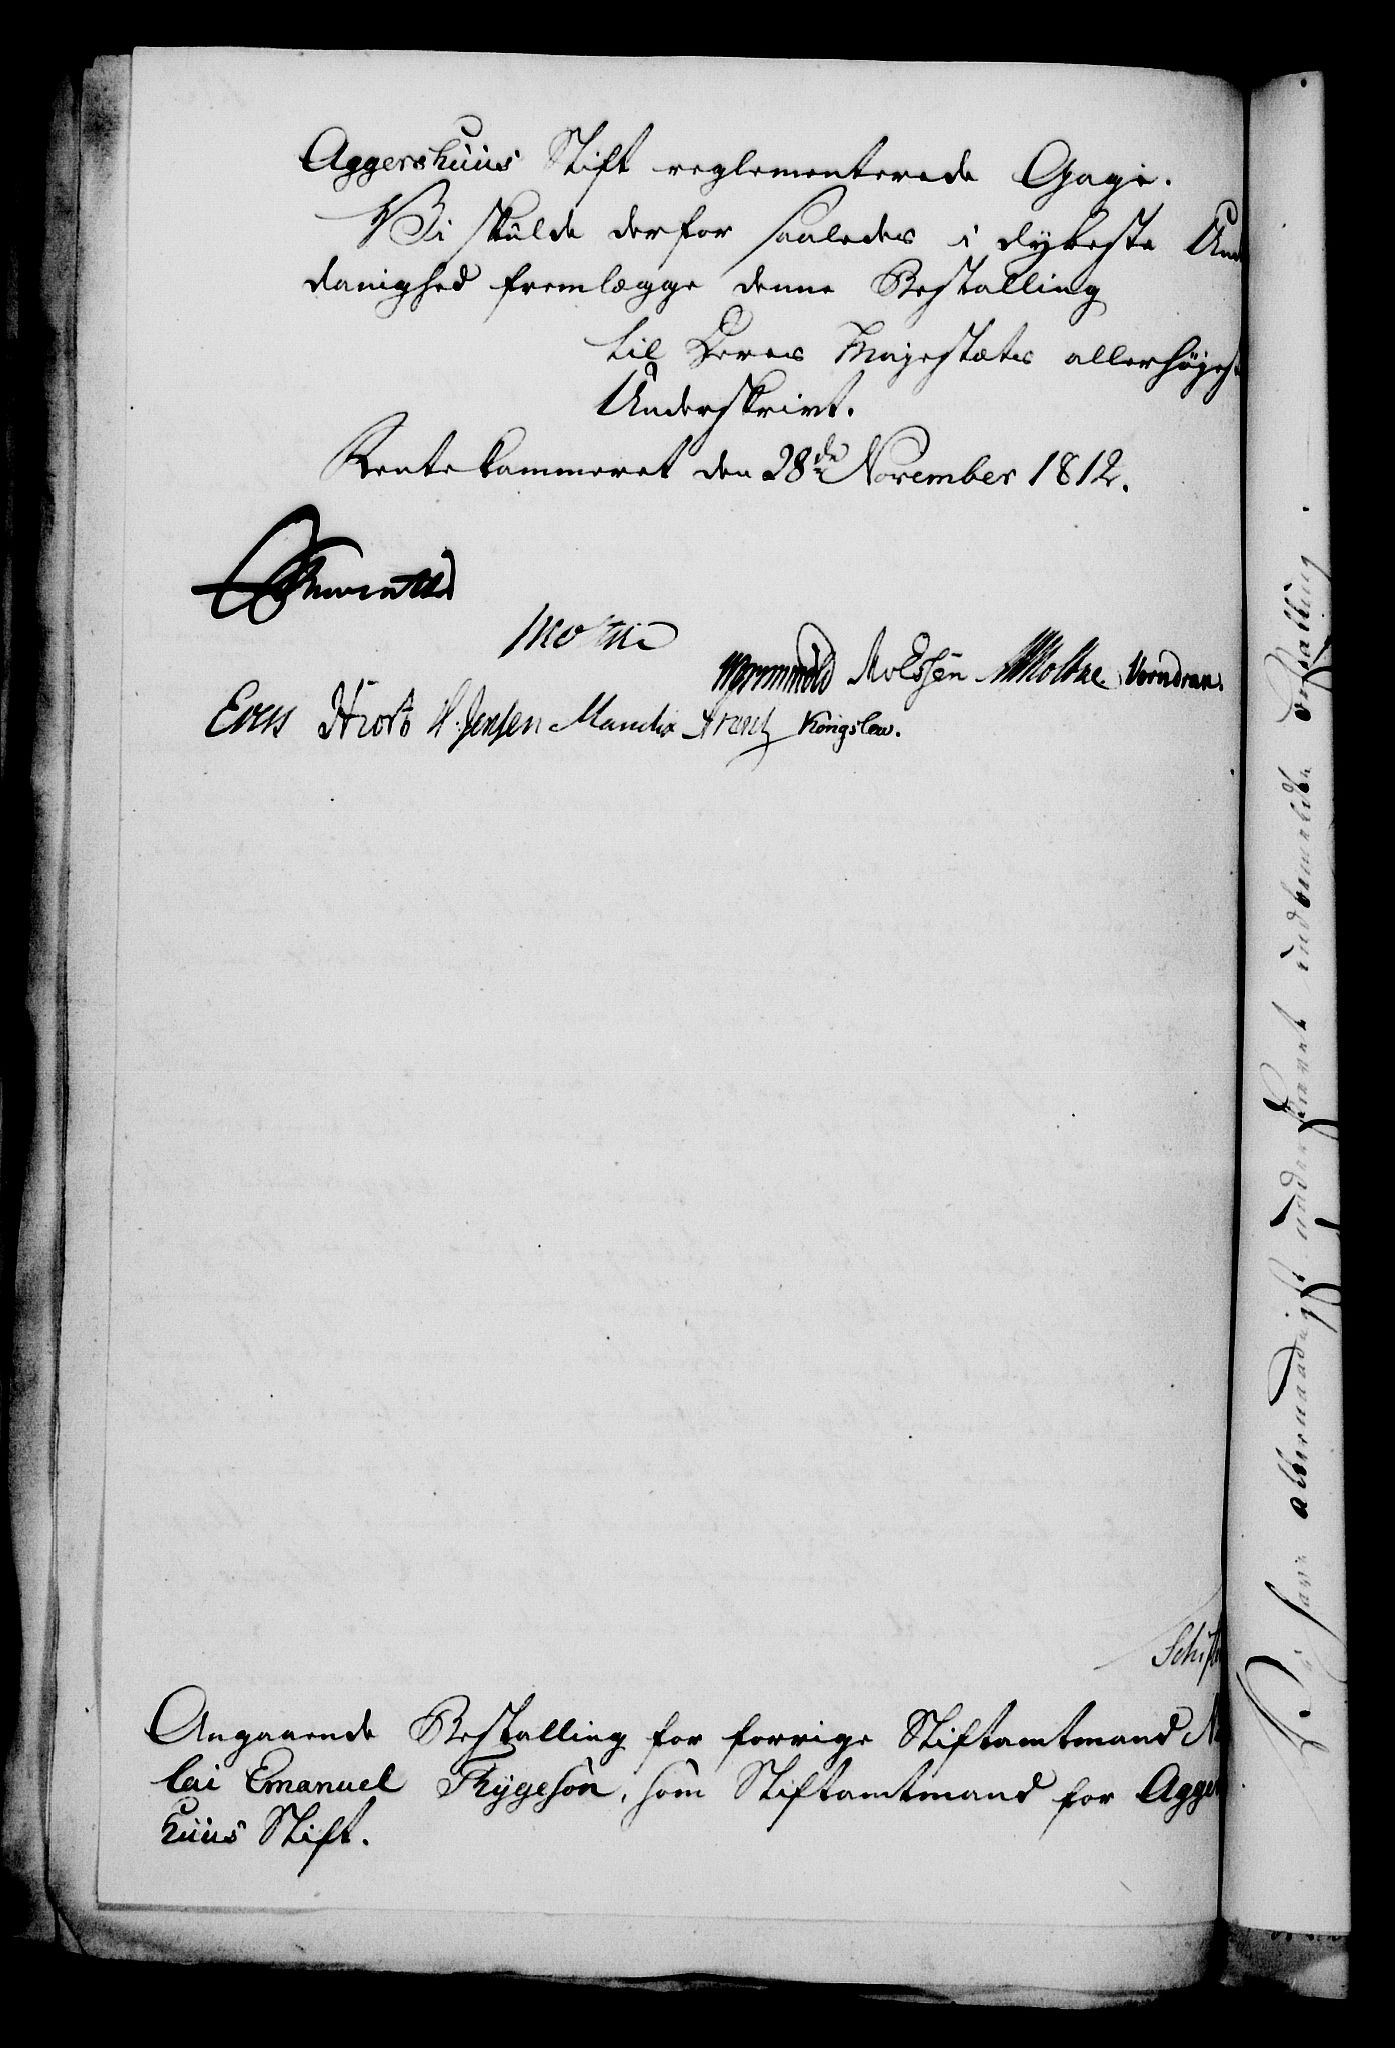 Aggershuus Stift reglementerede Gage.
Vi skulde derfor saaledes i dybeste Und
danighed fremlægge denne Bestalling
til Deres Majestæts allerhøjest
Underskrivt.
Rentekammeret den 28de November 1812.
Moltke
Molssen Moltke. Vorndran.
Hiort H. Jensen Manthe Arentz Köngslew.
Schift
Angaaende Bestalling for forrige Stiftamtmand Ni
lai Emanuel Thygeson, som Stiftamtmand for Agger
huus Stift.
Vi have allernaadigst underskrevet indbemeldte Bestalling.